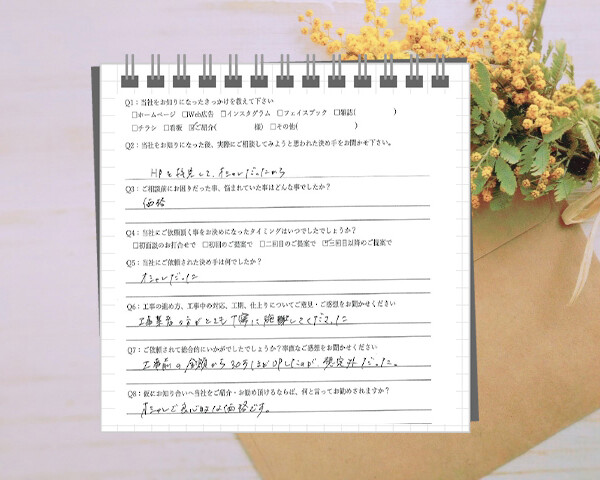 Q1：当社をお知りになったきっかけを教えて下さい
□ホームページ □Web広告 □インスタグラム □フェイスブック □雑誌( )
□チラシ □看板 ☑ご紹介( 様) □その他( )
Q2：当社をお知りになった後、実際にご相談してみようと思われた決め手をお聞かせ下さい。
HPを拝見して、オシャレだったから
Q3：ご相談前にお困りだった事、悩まれていた事はどんな事でしたか？
価格
Q4：当社にご依頼頂く事をお決めになったタイミングはいつでしたでしょうか？
□初面談のお打合せで □初回のご提案で □二回目のご提案で ☑三回目以降のご提案で
Q5：当社にご依頼された決め手は何でしたか？
オシャレだった
Q6：工事の進め方、工事中の対応、工期、仕上りについてご意見・ご感想をお聞かせください
工事業者の方がとても丁寧に してくださった
Q7：ご依頼されて総合的にいかがでしたでしょうか？率直なご感想をお聞かせください
工事前の金額から30万ほどUPしたのが、想定外だった。
Q8：仮にお知り合いへ当社をご紹介・お勧め頂けるならば、何と言ってお勧めされますか？
オシャレで良心的な価格です。